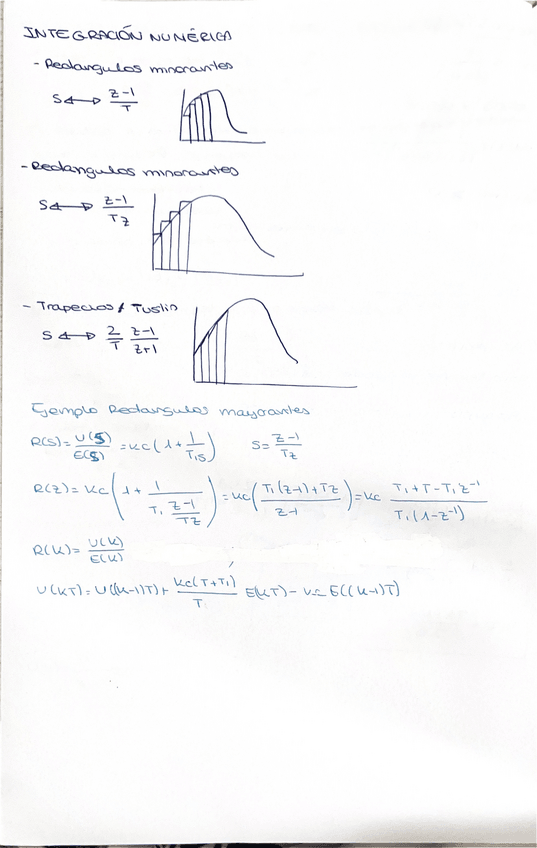 INTEGRACIÓN NUMÉRICA
- Rectangulos minorantes
S ↔ (z-1)/T
- Rectangulos minorantes
S ↔ (z-1)/(Tz)
- Trapecios / Tustin
S ↔ (2/T) (z-1)/(z+1)
Ejemplo Rectangulos mayorantes
R(S) = U(S)/E(S) = Kc(1 + 1/(T₁s)) S = (z-1)/(Tz)
R(z) = Kc(1 + 1/(T₁ (z-1)/(Tz))) = Kc((T₁(z-1)+Tz)/(z-1)) = Kc (T₁+T-T₁z⁻¹)/(T₁(1-z⁻¹))
R(K) = U(K)/E(K)
U(KT) = U((K-1)T) + (Kc(T+T₁))/T E(KT) - Kc E((K-1)T)